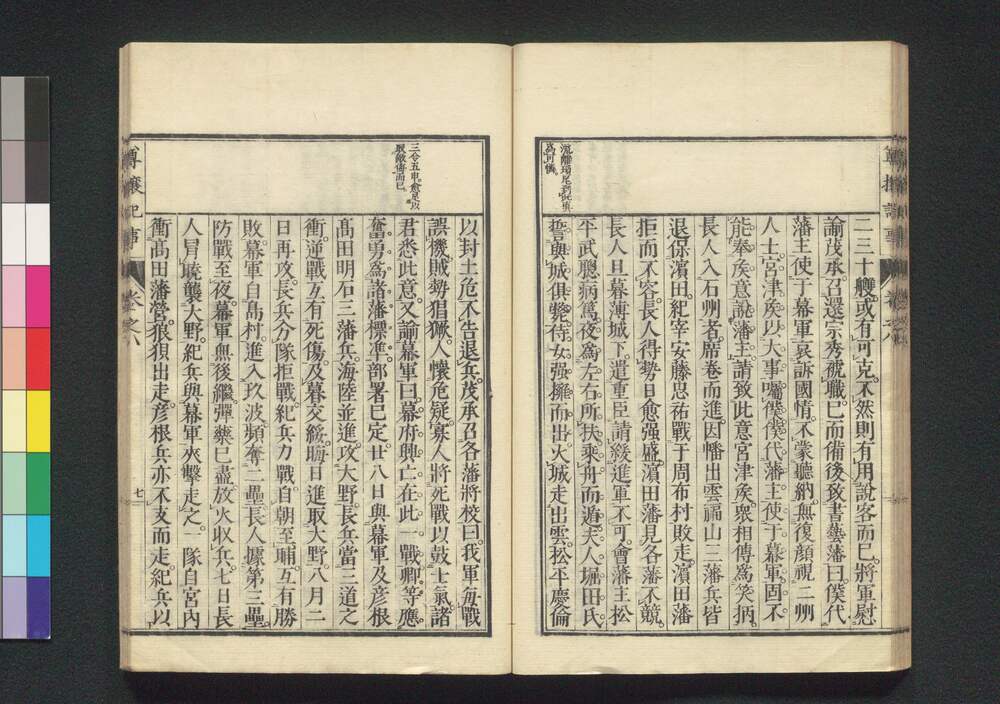 流離瑣尾到此眞
爲可憐
二三十艘。或有可克。不然則有用說客而已。將軍慰
諭茂承。召還宗秀褫職。已而備後致書藝藩曰。僕代
藩主使于幕軍哀訴國情。不蒙聽納。無復顏視二州
人士。宮津矦以大事囑僕。僕代藩主使于幕軍。固不
能奉矦意。說藩主。請致此意宮津矦。衆相傳爲笑柄。
長人入石州者。席卷而進。因幡出雲福山三藩兵皆
退保濱田。紀宰安藤忠祐戰于周布村敗走。濱田藩
拒而不容。長人得勢日愈强盛。濱田藩見各藩不競。
長人且暮薄城下。遣重臣請緩進軍不可。會藩主松
平武聰病篤。夜爲左右所扶。乘舟而遁。夫人堀田氏
誓與城俱斃。侍女强擁而出。火城走出雲。松平慶倫
三令五申。愈見以
服敵傷而已。
以封土危。不告退兵。茂承召各藩將校曰。我軍每戰
誤機。賊勢猖獗。人懷危疑。寡人將死戰以鼓士氣。諸
君悉此意。又諭幕軍曰。幕府興亡在此一戰。卿等應
奮勇爲諸藩標準。部署已定。廿八日與幕軍及彥根
髙田明石三藩兵。海陸並進。攻大野。長兵當三道之
衝。逆戰互有死傷。及暮交綏。晦日進取大野。八月二
日再攻。長兵分隊拒戰。紀兵力戰。自朝至晡。互有勝
敗。幕軍自髙村。進入玖波。頻奪二壘。長人據第三壘。
防戰至夜。幕軍無後繼。彈藥已盡。放火收兵。七日長
人冒曉襲大野。紀兵與幕軍夾擊走之。一隊自宮内
衝髙田藩營。狼狽出走。彥根兵亦不支而走。紀兵以
尊攘記事
卷之八
七